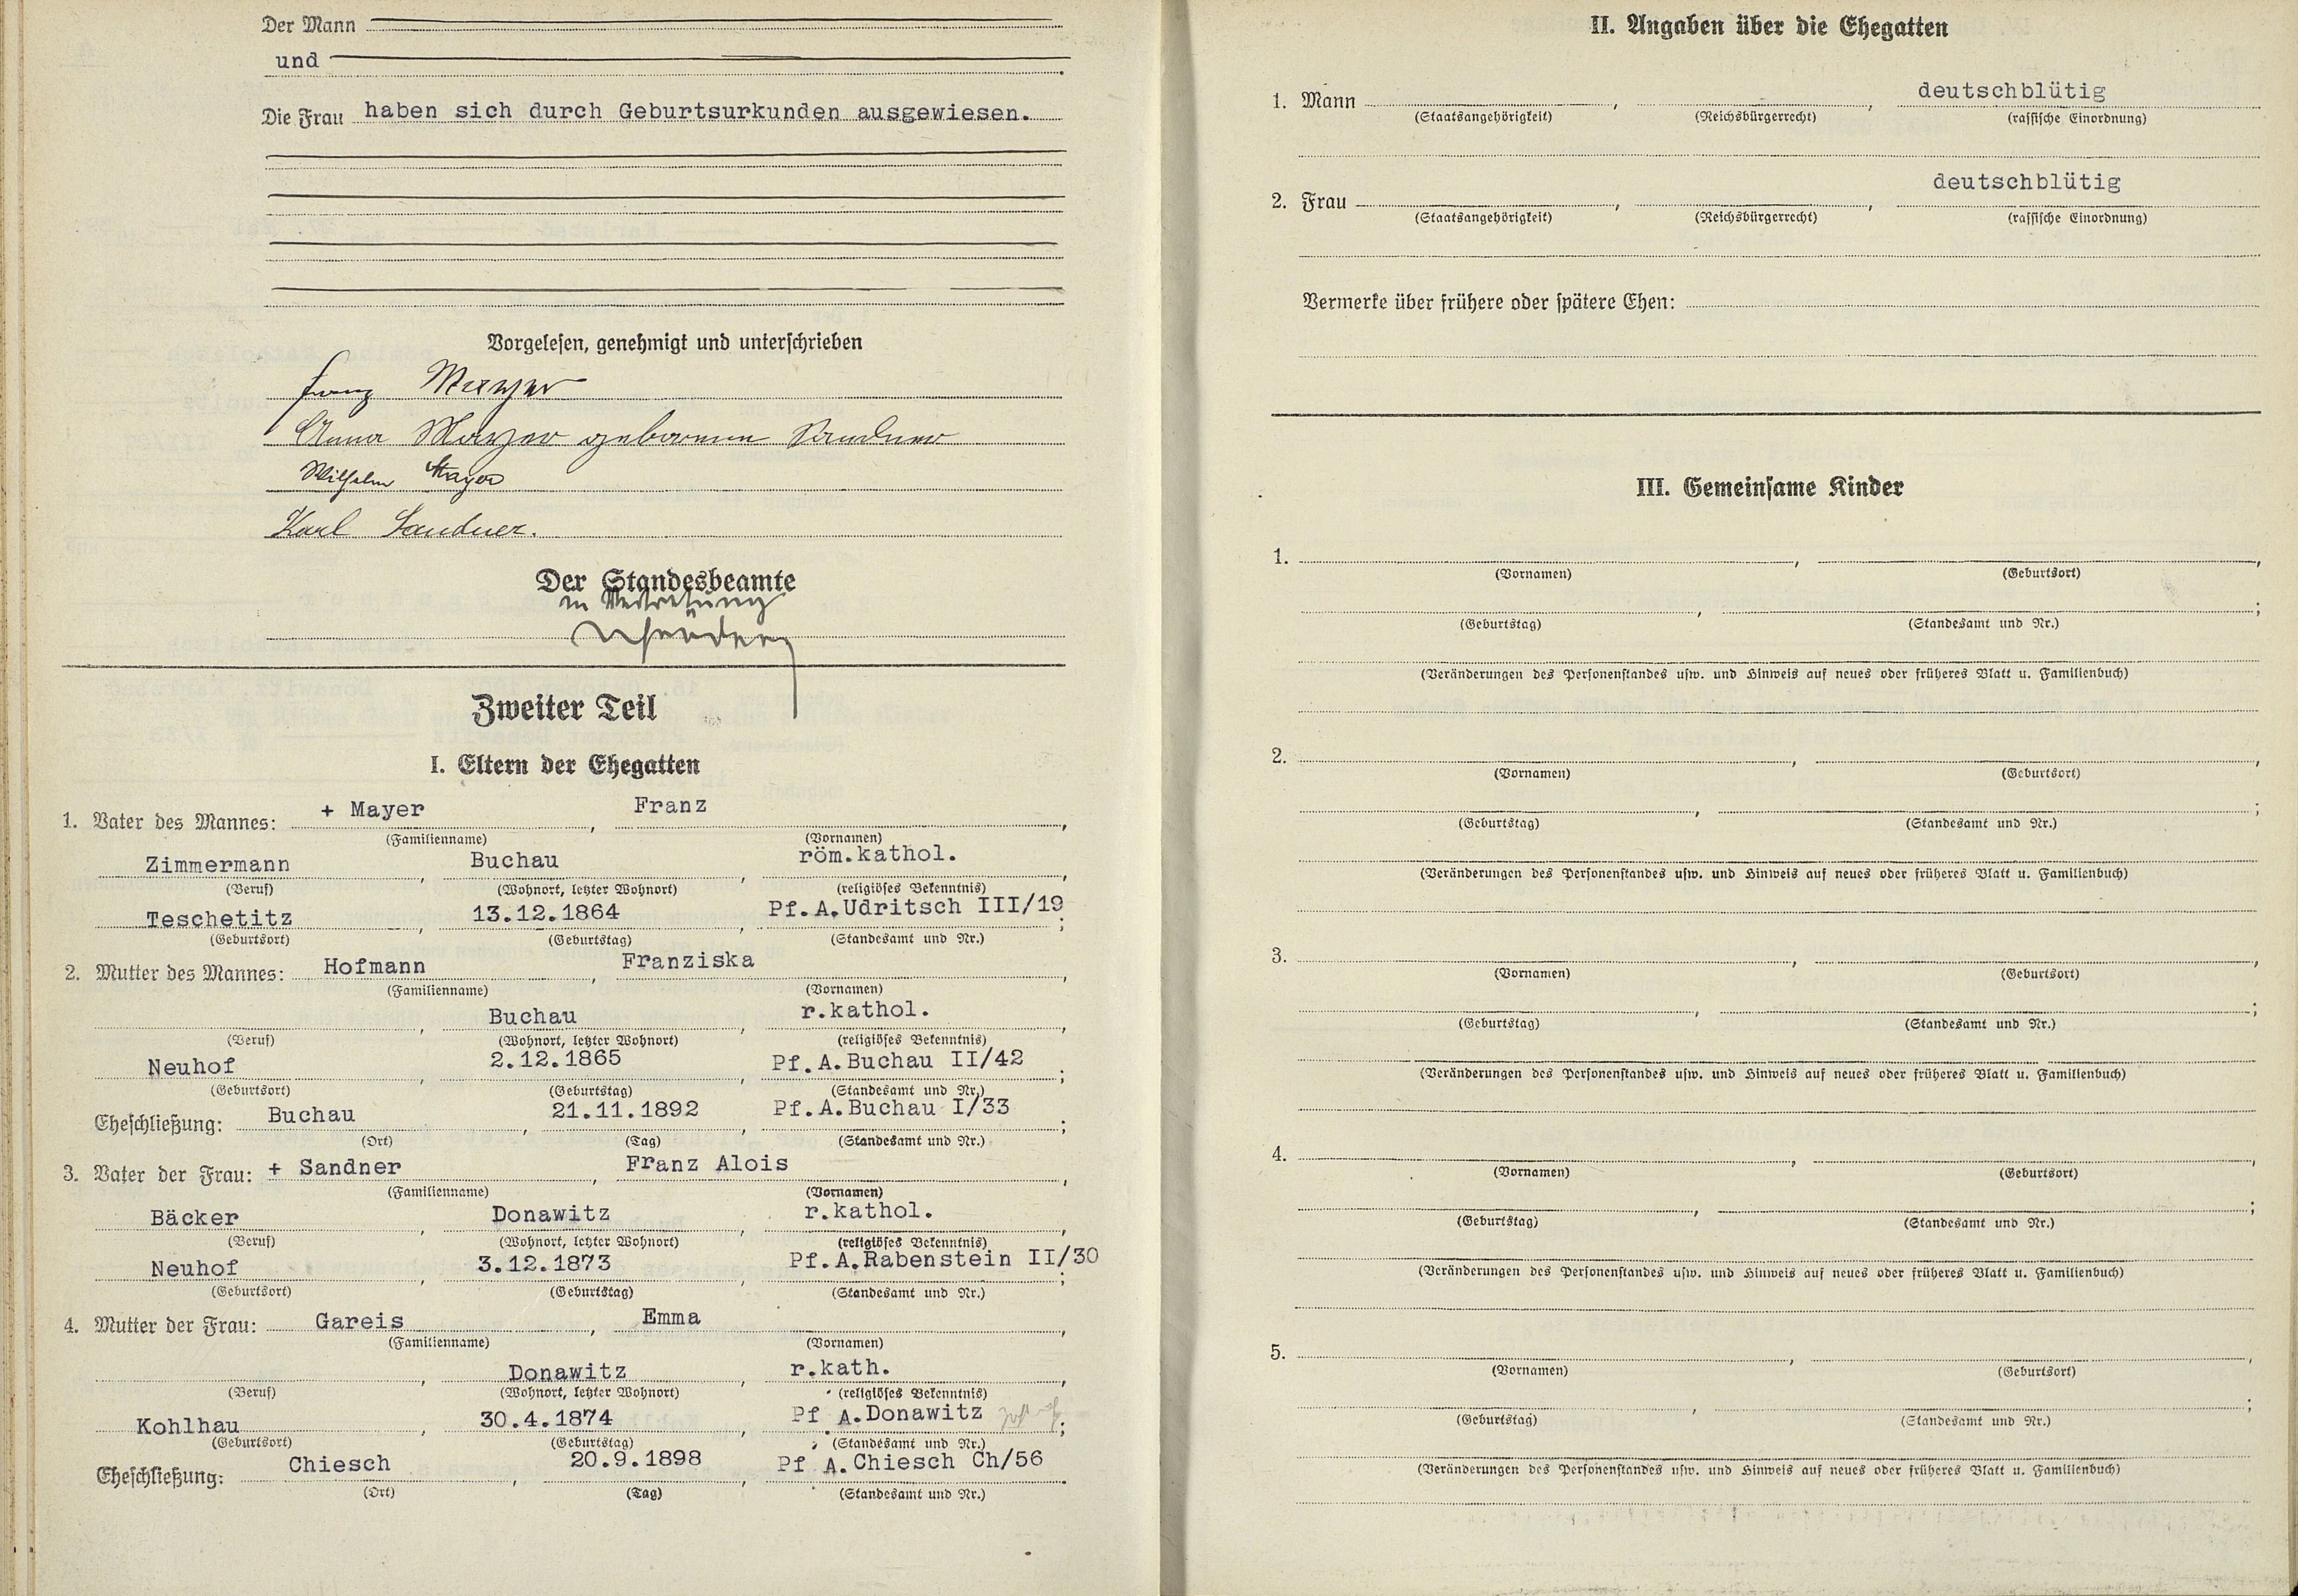 Der Mann
und
Die Frau haben sich durch Geburtsurkunden ausgewiesen.
Vorgelesen, genehmigt und unterschrieben
Franz Mayer
Anna Mayer geborenen Sandner
Wilhelm Mayer
Karl Sandner.
Der Standesbeamte
in Vertretung
Zweiter Teil
I. Eltern der Ehegatten
1. Vater des Mannes: + Mayer, Franz,
(Familienname) (Vornamen)
Zimmermann, Buchau, röm.kathol.,
(Beruf) (Wohnort, letzter Wohnort) (religiöses Bekenntnis)
Teschetitz, 13.12.1864, Pf.A.Udritsch III/19;
(Geburtsort) (Geburtstag) (Standesamt und Nr.)
2. Mutter des Mannes: Hofmann, Franziska,
(Familienname) (Vornamen)
, Buchau, r.kathol.,
(Beruf) (Wohnort, letzter Wohnort) (religiöses Bekenntnis)
Neuhof, 2.12.1865, Pf.A.Buchau II/42;
(Geburtsort) (Geburtstag) (Standesamt und Nr.)
Eheschließung: Buchau, 21.11.1892, Pf.A.Buchau I/33;
(Ort) (Tag) (Standesamt und Nr.)
3. Vater der Frau: + Sandner, Franz Alois,
(Familienname) (Vornamen)
Bäcker, Donawitz, r.kathol.,
(Beruf) (Wohnort, letzter Wohnort) (religiöses Bekenntnis)
Neuhof, 3.12.1873, Pf.A.Rabenstein II/30;
(Geburtsort) (Geburtstag) (Standesamt und Nr.)
4. Mutter der Frau: Gareis, Emma,
(Familienname) (Vornamen)
, Donawitz, r.kath.,
(Beruf) (Wohnort, letzter Wohnort) (religiöses Bekenntnis)
Kohlhau, 30.4.1874, Pf A.Donawitz;
(Geburtsort) (Geburtstag) (Standesamt und Nr.)
Eheschließung: Chiesch, 20.9.1898, Pf A.Chiesch Ch/56.
(Ort) (Tag) (Standesamt und Nr.)
II. Angaben über die Ehegatten
1. Mann , , deutschblütig
(Staatsangehörigkeit) (Reichsbürgerrecht) (rassische Einordnung)
2. Frau , , deutschblütig
(Staatsangehörigkeit) (Reichsbürgerrecht) (rassische Einordnung)
Vermerke über frühere oder spätere Ehen:
III. Gemeinsame Kinder
1. , ,
(Vornamen) (Geburtsort)
, ;
(Geburtstag) (Standesamt und Nr.)
(Veränderungen des Personenstandes usw. und Hinweis auf neues oder früheres Blatt u. Familienbuch)
2. , ,
(Vornamen) (Geburtsort)
, ;
(Geburtstag) (Standesamt und Nr.)
(Veränderungen des Personenstandes usw. und Hinweis auf neues oder früheres Blatt u. Familienbuch)
3. , ,
(Vornamen) (Geburtsort)
, ;
(Geburtstag) (Standesamt und Nr.)
(Veränderungen des Personenstandes usw. und Hinweis auf neues oder früheres Blatt u. Familienbuch)
4. , ,
(Vornamen) (Geburtsort)
, ;
(Geburtstag) (Standesamt und Nr.)
(Veränderungen des Personenstandes usw. und Hinweis auf neues oder früheres Blatt u. Familienbuch)
5. , ,
(Vornamen) (Geburtsort)
, ;
(Geburtstag) (Standesamt und Nr.)
(Veränderungen des Personenstandes usw. und Hinweis auf neues oder früheres Blatt u. Familienbuch)